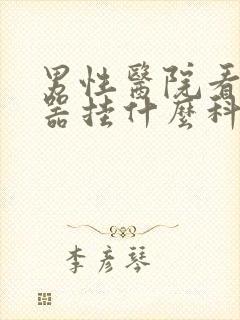 男性醫院看
器挂什麼科
李彦琴